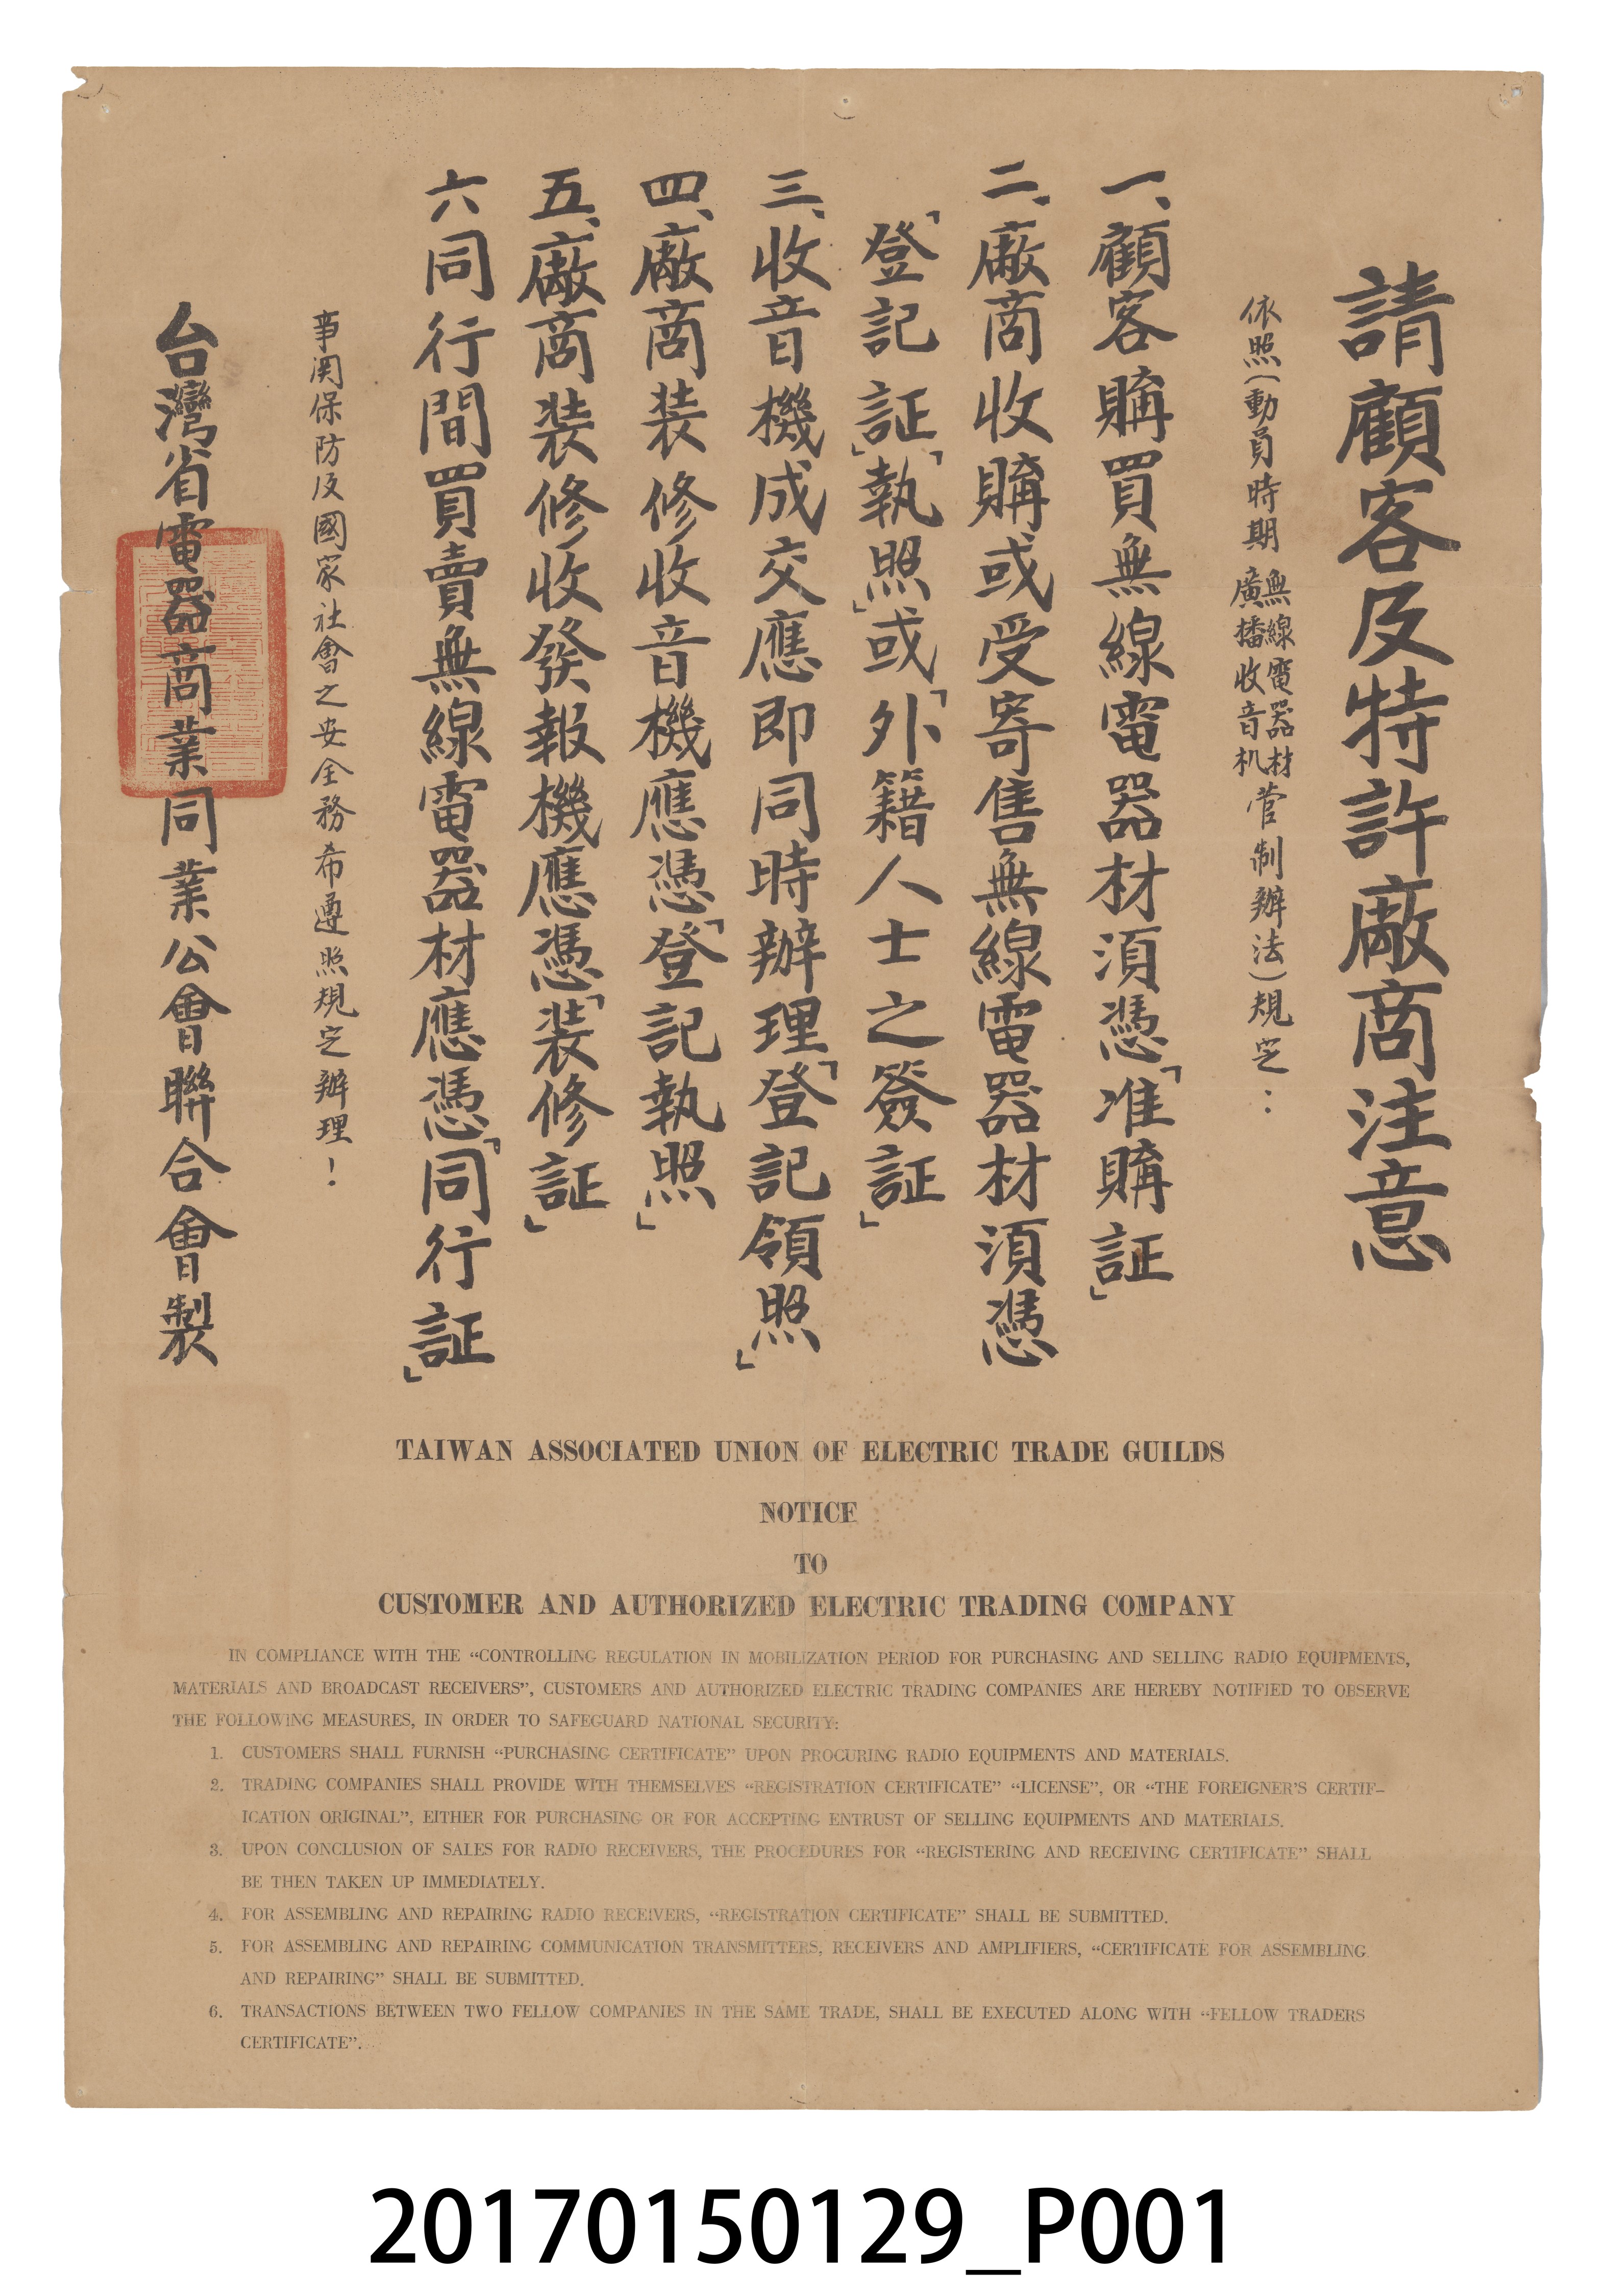 請顧客及特許廠商注意
依照(動員時期無線電器材廣播收音机管制辦法)規定：
一、顧客購買無線電器材須憑「准購証」
二、廠商收購或受寄售無線電器材須憑
「登記証」「執照」或「外籍人士之簽証」
三、收音機成交應即同時辦理「登記領照」
四、廠商装修收音機應憑「登記執照」
五、廠商装修收發報機應憑「装修証」
六同行間買賣無線電器材應憑「同行証」
事関保防及國家社會之安全務希遵照規定辦理！
台灣省電器商業同業公會聯合會製
TAIWAN ASSOCIATED UNION OF ELECTRIC TRADE GUILDS
NOTICE
TO
CUSTOMER AND AUTHORIZED ELECTRIC TRADING COMPANY
IN COMPLIANCE WITH THE “CONTROLLING REGULATION IN MOBILIZATION PERIOD FOR PURCHASING AND SELLING RADIO EQUIPMENTS,
MATERIALS AND BROADCAST RECEIVERS”, CUSTOMERS AND AUTHORIZED ELECTRIC TRADING COMPANIES ARE HEREBY NOTIFIED TO OBSERVE
THE FOLLOWING MEASURES, IN ORDER TO SAFEGUARD NATIONAL SECURITY:
1. CUSTOMERS SHALL FURNISH “PURCHASING CERTIFICATE” UPON PROCURING RADIO EQUIPMENTS AND MATERIALS.
2. TRADING COMPANIES SHALL PROVIDE WITH THEMSELVES “REGISTRATION CERTIFICATE” “LICENSE”, OR “THE FOREIGNER’S CERTIF-
ICATION ORIGINAL”, EITHER FOR PURCHASING OR FOR ACCEPTING ENTRUST OF SELLING EQUIPMENTS AND MATERIALS.
3. UPON CONCLUSION OF SALES FOR RADIO RECEIVERS, THE PROCEDURES FOR “REGISTERING AND RECEIVING CERTIFICATE” SHALL
BE THEN TAKEN UP IMMEDIATELY.
4. FOR ASSEMBLING AND REPAIRING RADIO RECEIVERS, “REGISTRATION CERTIFICATE” SHALL BE SUBMITTED.
5. FOR ASSEMBLING AND REPAIRING COMMUNICATION TRANSMITTERS, RECEIVERS AND AMPLIFIERS, “CERTIFICATE FOR ASSEMBLING
AND REPAIRING” SHALL BE SUBMITTED.
6. TRANSACTIONS BETWEEN TWO FELLOW COMPANIES IN THE SAME TRADE, SHALL BE EXECUTED ALONG WITH “FELLOW TRADERS
CERTIFICATE”.
20170150129_P001